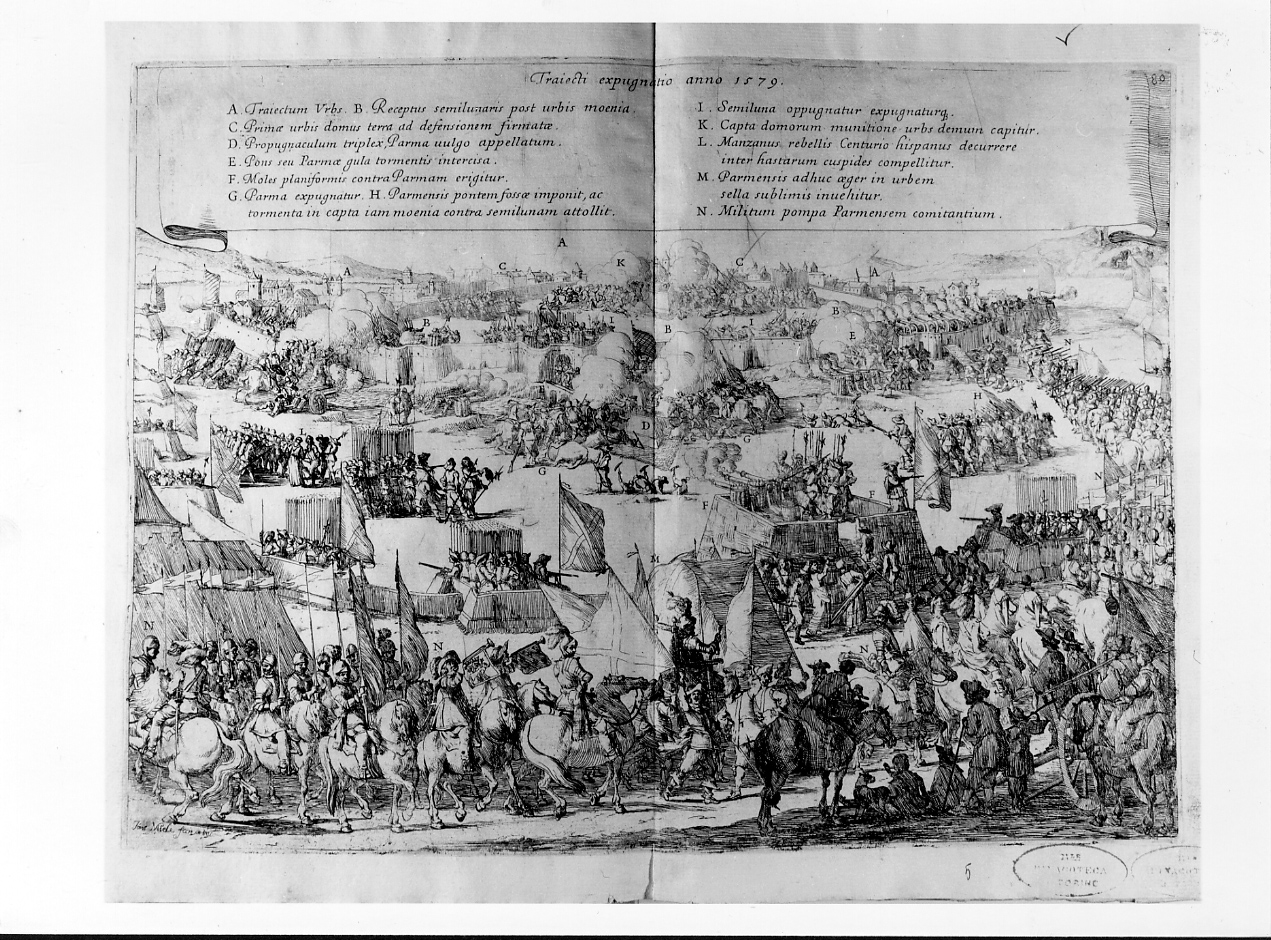 Traiecti expugnatio anno 1579.
80
A. Traiectum Vrbs. B. Receptus semilunaris post urbis moenia.
C. Primæ urbis domus terra ad defensionem firmatæ.
D. Propugnaculum triplex, Parma uulgo appellatum.
E. Pons seu Parmæ gula tormentis intercisa.
F. Moles planiformis contra Parmam erigitur.
G. Parma expugnatur. H. Parmensis pontem fossæ imponit, ac
tormenta in capta iam moenia contra semilunam attollit.
I. Semiluna oppugnatur expugnaturq.
K. Capta domorum munitione urbs demum capitur.
L. Manzanus rebellis Centurio hispanus decurrere
inter hastarum cuspides compellitur.
M. Parmensis adhuc æger in urbem
sella sublimis inuehitur.
N. Militum pompa Parmensem comitantium.
A
A C K C A
B I I B
B E
N
H
L D
G G
F
F
N
M
N N
N
BIBLIOTECA
TORINO